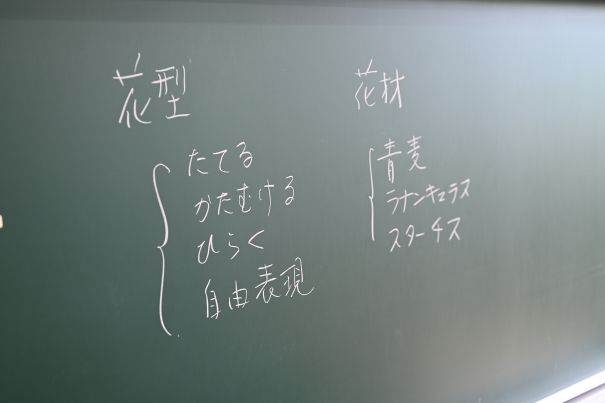 花型
たてる
かたむける
ひらく
自由表現
花材
青麦
ラナンキュラス
スターチス